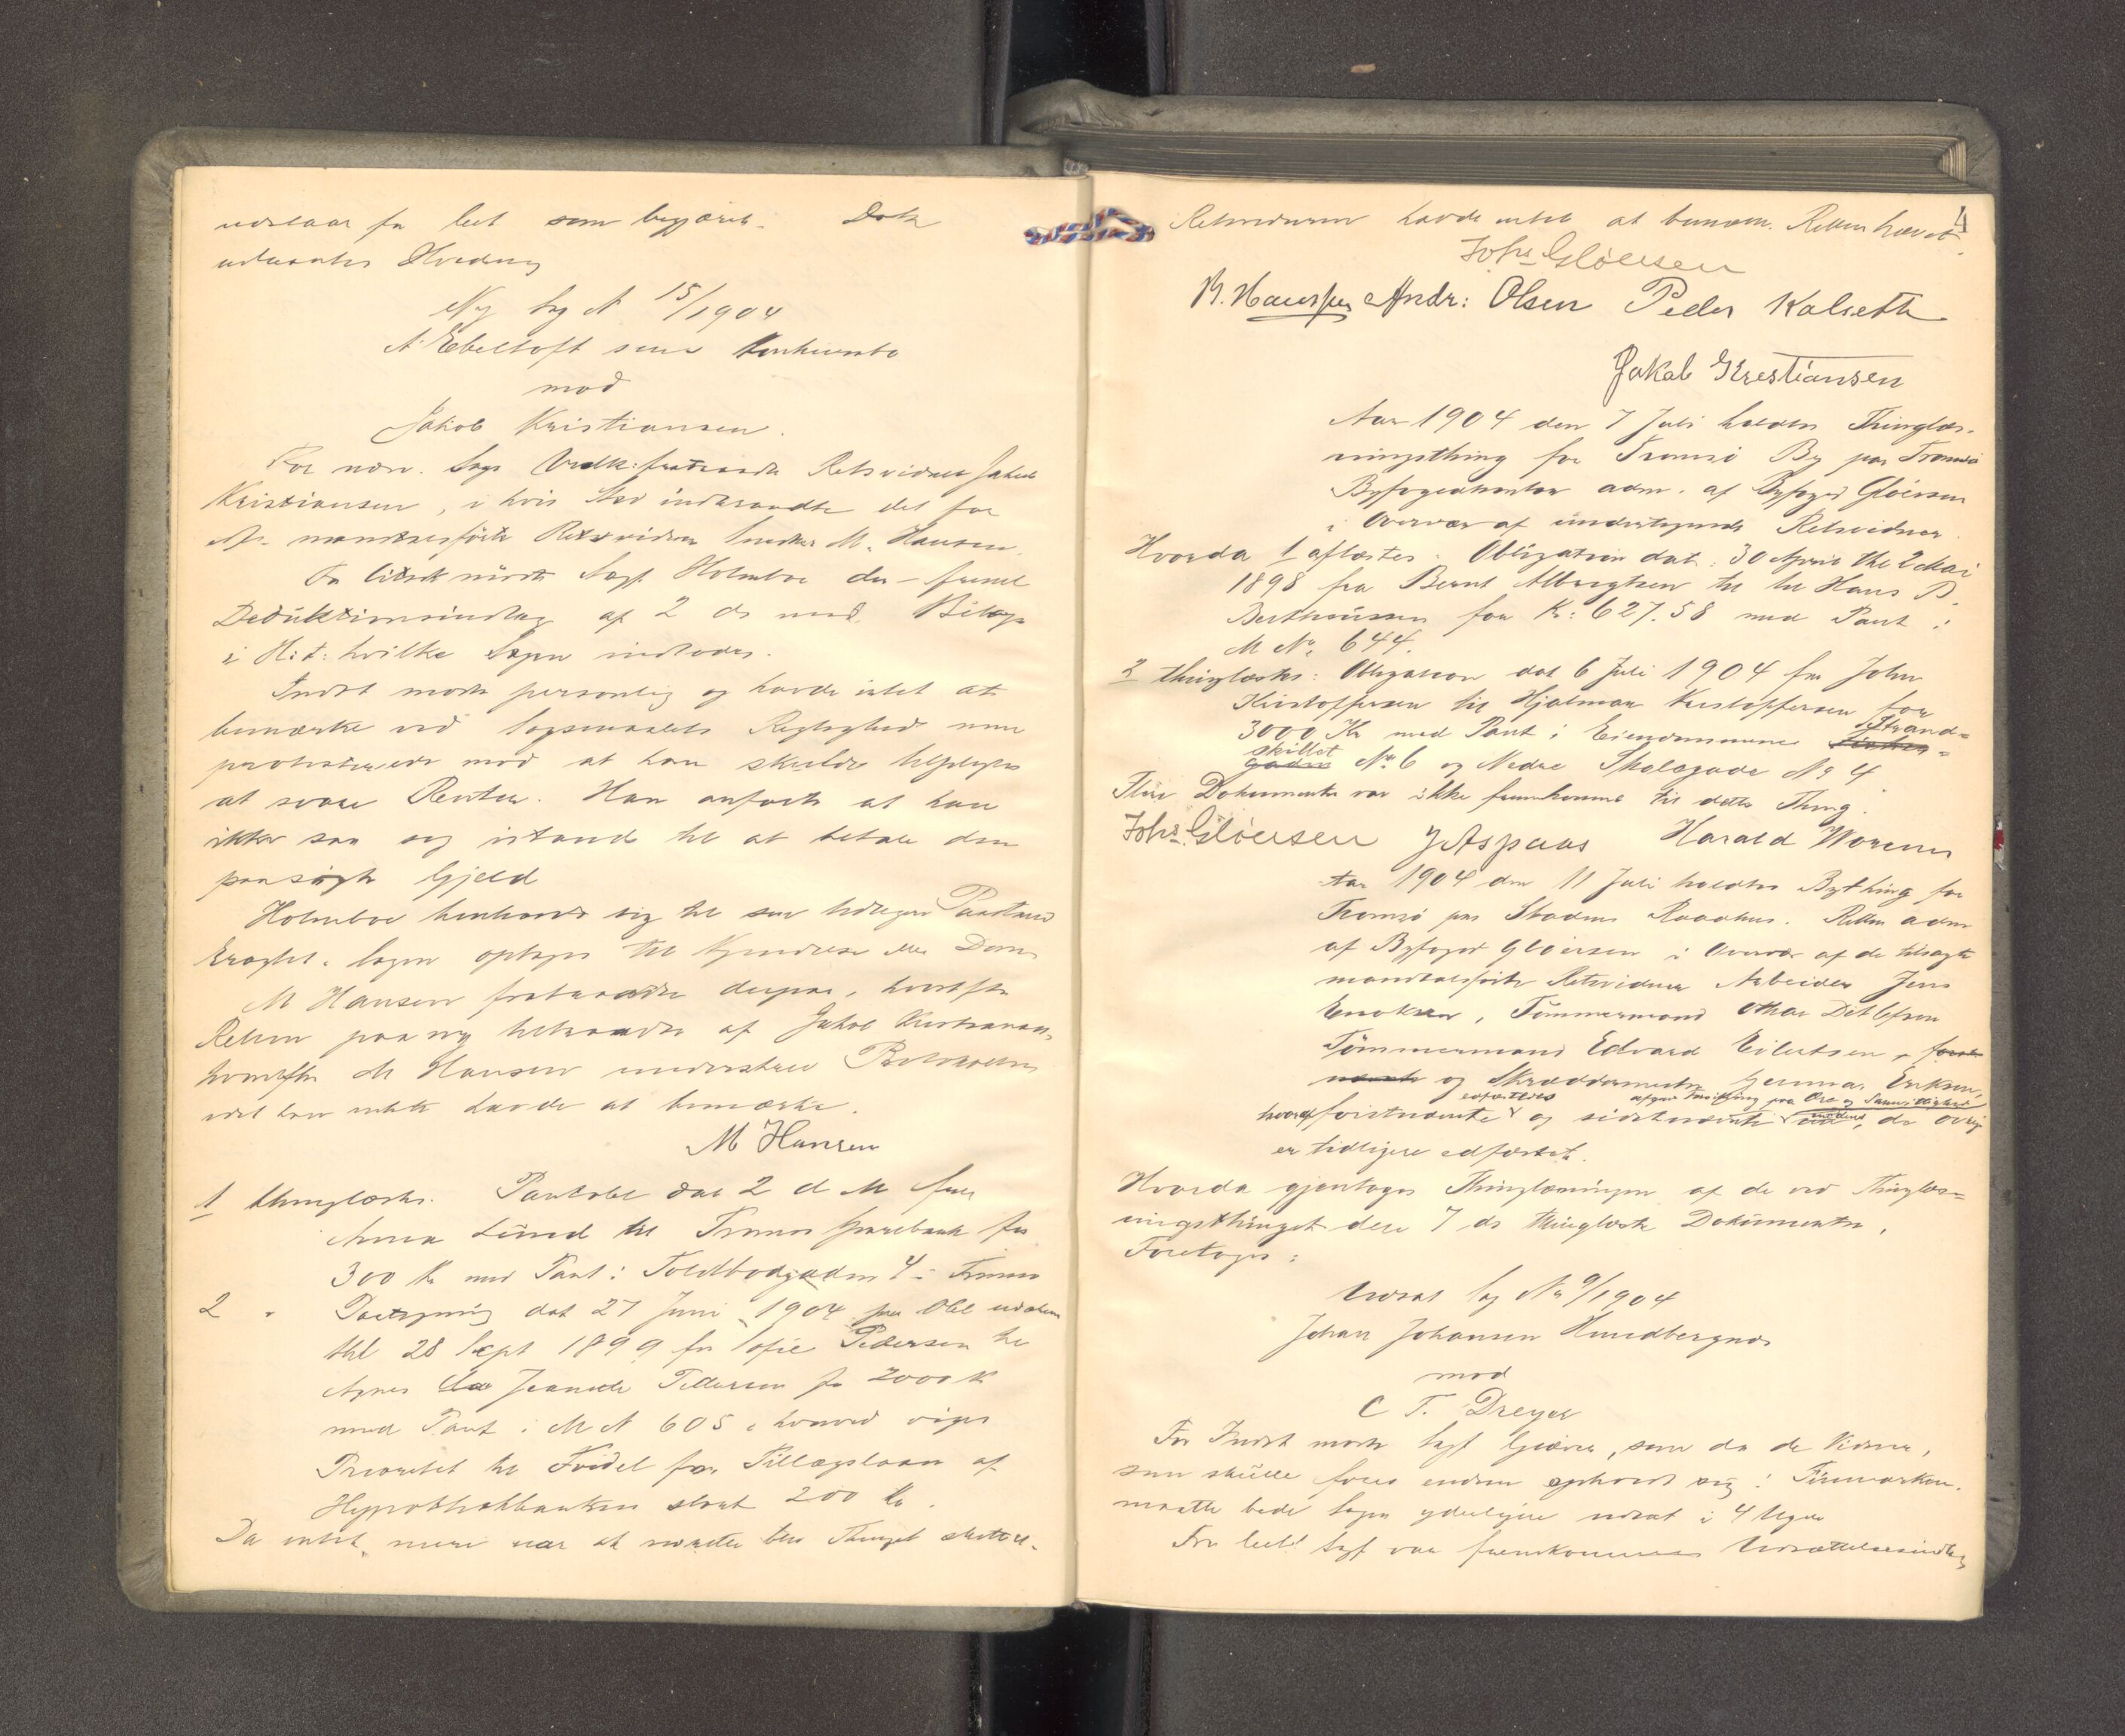 udslaar fra best som begjæret. Dok
udsættes Hvedning
Ny sag N 15/1904
A Ebeltoft sens Konkursbo
mod
Jakob Kristiansen.
For nærv. Sags Vedk: fratraadte Retsvidnet Jakob
Kristiansen, i hvis Sted indtraadte det for
mandtalsførte Retsvidne Snedker M. Hansen.
For Citsk mødte Sagf. Holmboe der freml
Deduktionsindlæg af 2 ds med Bilage
i H: t: hvilke Sagen indlodes.
Indst mødte personlig og havde intet at
bemærke ved Sagsmaalets Rigtighed men
protesterede mod at han skulde tilpligtes
at svare Renter. Han anførte at han
ikke saa sig istand til at betale den
paasøgte Gjeld
Holmboe henholdt sig til sin tidligere Paastand
Eragtet. Sagen optages til Kjendelse eller Dom
M Hansen fratraadte derpaa, hvorefter
Retten paa ny tiltraadtes af Jakob Kristiansen,
hvorefter M Hansen underskrev Protokollen
idet han intet havde at bemærke.
M Hansen
1 thinglæstes. Pantobl dat 2 d M fra
Anna Lund til Tromsø Sparebank for
300 Kr med Pant i Toldbodgaden 4 i Tromsø
2 " Paategning dat 27 Juni 1904 paa Obl udstedt
thl 28 Sept 1899 fra Sofie Pedersen til
Agnes Jeanette Pettersen for 2000 K
med Pant i M N 605, hvorved viges
Prioritet til Fordel for Tillægslaan af
Hypothekbanken stort 200 Kr.
Da intet mere var at udrette blev Thinget sluttet.
4
Retsvidnerne havde intet at bemærke. Retten hævet.
Johs Gløersen
M. Hansen Andr: Olsen Peder Kalseth
Jakob Kristiansen
Aar 1904 den 7 Juli holdtes Thinglæs-
ningsthing for Tromsø By paa Tromsø
Byfogedkontor adm. af Byfoged Gløersen
i Overvær af undertegnede Retsvidner.
Hvorda 1 aflæstes: Obligation dat: 30 April thl 2 Mai
1898 fra Bernt Albrigtsen til Hans B.
Bertheussen for Kr: 627.58 med Pant i
M No 644.
2 thinglæstes: Obligation dat 6 Juli 1904 fra John
Kristoffersen til Hjalmar Kristoffersen for
3000 Kr med Pant i Eiendommene Strand=
skillet No 6 og Nedre Skolegade No 4
Flere Dokumenter var ikke fremkomne til dette Thing.
Johs. Gløersen J Aspaas Harald Worum
Aar 1904 den 11 Juli holdtes Bything for
Tromsø paa Stadens Raadhus. Retten adm
af Byfoged Gløersen i Overvær af de tilsagte
mandtalsførte Retsvidner Arbeider Jens
Enoksen, Tømmermand Othar Detlefsen
Tømmermand Edvard Eilertsen, først
nævnte og Skræddermester Gunnar Eriksen,
edfæstedes afgav Forsikring paa Ære og Samvittighed
hvoraf førstnævnte og sidstnævnte medens de øvrige
er tidligere edfæstet.
Hvorda gjentoges Thinglæsningen af de ved Thinglæs=
ningsthinget dere 7 ds thinglæste Dokumenter.
Foretoges:
Udsat Sag No 9/1904
Johan Johansen Hundbergnes
mod
C T. Dreyer
For Indst mødte Sagf Giæver, som da de Vidner,
som skulle føres endnu opholdt sig i Finmarken,
maatte bede Sagen yderligere udsat i 4 Uger
Fra Sagf var fremkommet Udsættelsesindlæg